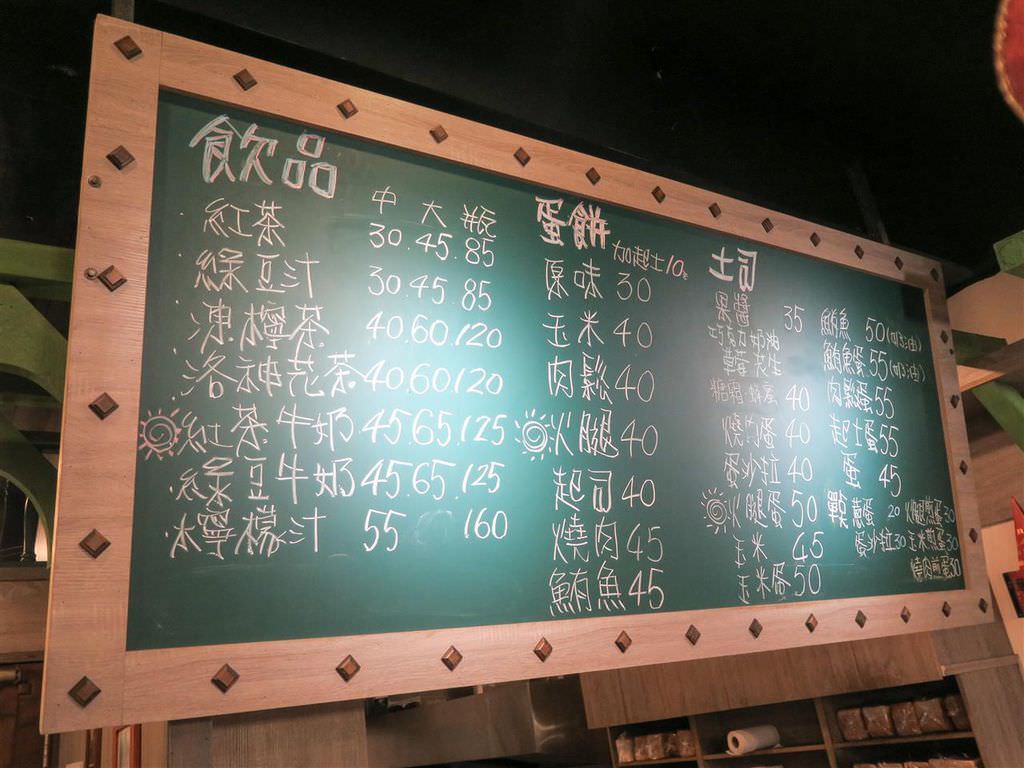 飲品
中 大 瓶
紅茶 30.45.85
綠豆汁 30.45.85
凍檸茶 40.60.120
洛神花茶 40.60.120
紅茶牛奶 45.65.125
綠豆牛奶 45.65.125
檸檬汁 55 160
蛋餅 加起士10元
原味 30
玉米 40
肉鬆 40
火腿 40
起司 40
燒肉 45
鮪魚 45
土司
果醬 35
巧克力 奶油
草莓 花生
40
燒肉蛋 40
蛋沙拉 40
火腿蛋 50
玉米 45
玉米蛋 50
鮪魚 50
鮪魚蛋 55
肉鬆蛋 55
起士蛋 55
蛋 45
單點 蔥蛋 20
蛋沙拉30
火腿煎蛋30
玉米煎蛋30
燒肉煎蛋30